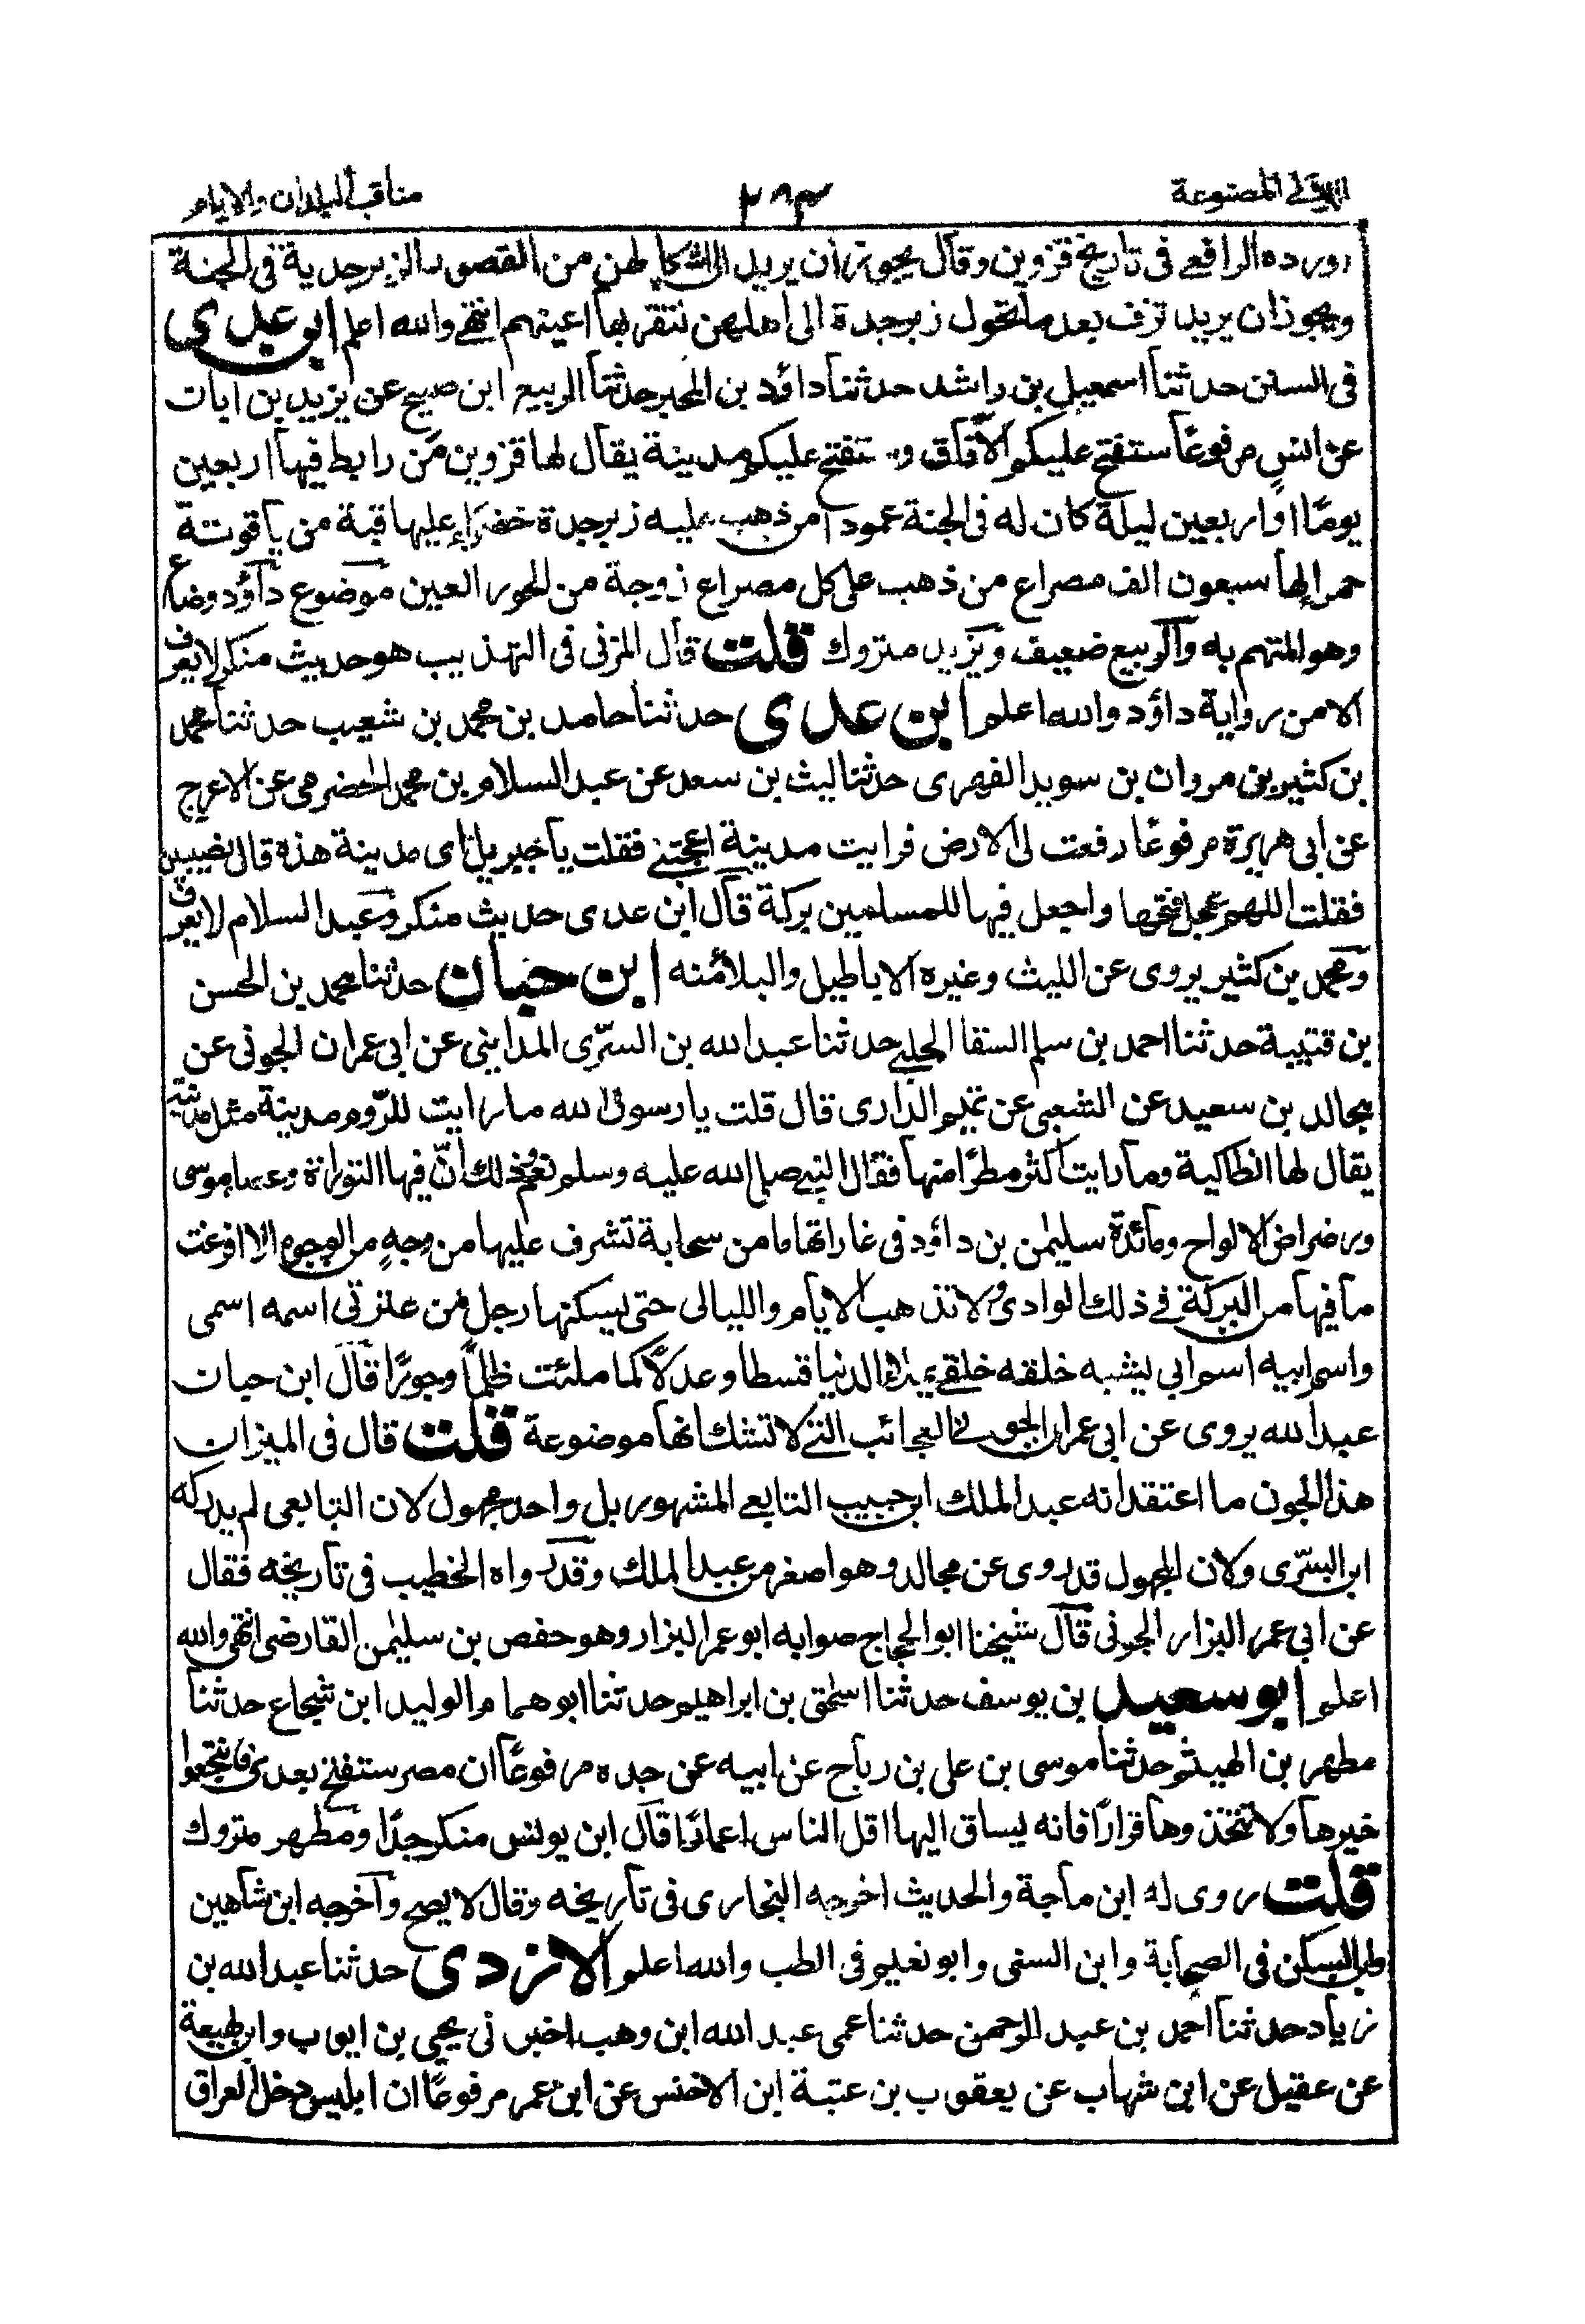 اللآلى المصنوعة ٢٨٣ مناقب البلدان والايام
اورده الرافعى فى تاريخ قزوين وقال يجوز ان يريد لهن من القصور الزبرجدية فى الجنة
ويجوز ان يريد تزف بعد ما تحول زبرجدة الى اهلهن فتقر بها اعينهم انتهى والله اعلم ابن عدى
فى السنن حدثنا اسمعيل بن راشد حدثنا داؤد بن المحبر حدثنا الربيع ابن صبيح عن يزيد بن ابان
عن انس مرفوعًا ستفتح عليكم الآفاق و ستفتح عليكم مدينة يقال لها قزوين مَن رابط فيها اربعين
يومًا او اربعين ليلة كان له فى الجنة عمود من ذهب عليه زبرجدة خضراء عليها قبة من ياقوتة
حمرا لها سبعون الف مصراع من ذهب على كل مصراع زوجة من الحور العين موضوع داؤد وضاع
وهو المتهم به والربيع ضعيف ويزيد متروك قلت قال المزنى فى التهذيب هو حديث منكر لا يعرف
الا من رواية داؤد والله اعلم ابن عدى حدثنا حامد بن محمد بن شعيب حدثنا محمد
بن كثير بن مروان بن سويد الفهرى حدثنا ليث بن سعد عن عبد السلام بن محمد الحضرمى عن الاعرج
عن ابى هريرة مرفوعًا رفعت لى الارض فرايت مدينة اعجبتنى فقلت يا جبريل اى مدينة هذه قال نصيبين
فقلت اللهم عجل فتحها واجعل فيها للمسلمين بركة قال ابن عدى حديث منكر وعبد السلام لا يعرف
ومحمد بن كثير يروى عن الليث وغيره الاباطيل والبلا منه ابن حبان حدثنا محمد بن الحسن
بن قتيبة حدثنا احمد بن سلم السقا الحلبى حدثنا عبد الله بن السرّى المداينى عن ابى عمران الجونى عن
مجالد بن سعيد عن الشعبى عن تميم الدارى قال قلت يا رسول الله ما رايت للرّوم مدينة مثل مدينة
يقال لها انطاكية وما رايت اكثر مطرًا منها فقال النبى صلى الله عليه وسلم نعم وذلك انّ فيها التوراة وعصا موسى
ورضراض الالواح ومائدة سليمن بن داؤد فى غاراتها ما من سحابة تشرف عليها من وجهٍ من الوجوه الا افرغت
ما فيها من البركة فى ذلك الوادى ولا تذهب الايام والليالى حتى يسكنها رجل من عترتى اسمه اسمى
واسم ابيه اسم ابى يشبه خلقه خلقى يملأ الدنيا قسطا وعدلًا كما ملئت ظلمًا وجورًا قال ابن حبان
عبد الله يروى عن ابى عمران الجونى العجائب التى لا تشك انها موضوعة قلت قال فى الميزان
هذا الجون ما اعتقد انه عبد الملك ابن حبيب التابعى المشهور بل واحد مجهول لان التابعى لم يدركه
ابن السّرى ولان المجهول قد روى عن مجالد وهو اصغر من عبد الملك وقد رواه الخطيب فى تاريخه فقال
عن ابى عمر البزار الجونى قال شيخنا ابو الحجاج صوابه ابو عمر البزار وهو حفص بن سليمن القارضى انتهى والله
اعلم ابو سعيد بن يوسف حدثنا اسحق بن ابراهيم حدثنا ابو همام الوليد ابن شجاع حدثنا
مطهر بن الهيثم حدثنا موسى بن على بن رباح عن ابيه عن جده مرفوعًا ان مصر ستفتح بعدى فانتجعوا
خيرها ولا تتخذوها قرارًا فانه يساق اليها اقل الناس اعمارًا قال ابن يونس منكر جدًا ومطهر متروك
قلت روى له ابن ماجة والحديث اخرجه البخارى فى تاريخه وقال لا يصح واخرجه ابن شاهين
وابن السكن فى الصحابة وابن السنى وابو نعيم فى الطب والله اعلم الازدى حدثنا عبد الله بن
زياد حدثنا احمد بن عبد الرحمن حدثنا عمى عبد الله ابن وهب اخبرنى يحيى بن ايوب وابن لهيعة
عن عقيل عن ابن شهاب عن يعقوب بن عتبة ابن الاخنس عن ابن عمر مرفوعًا ان ابليس دخل العراق